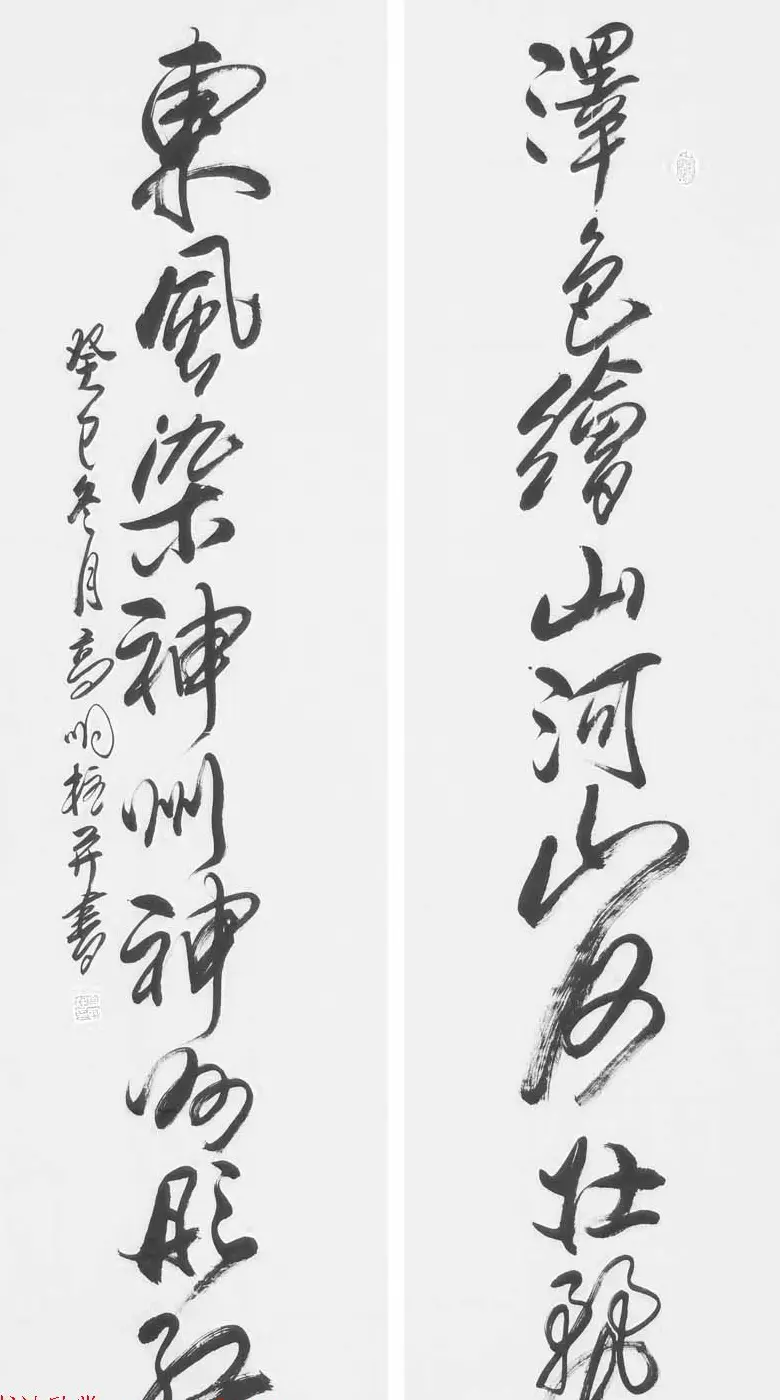 澤色繪山河山河壯
東風染神州神州彤
癸巳冬月高明并書